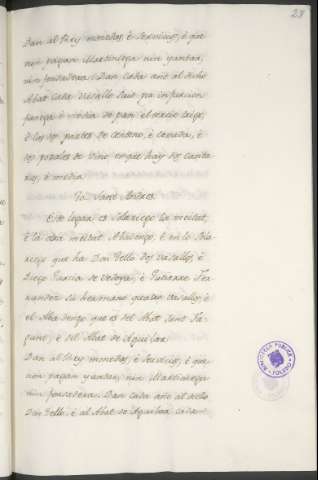 28
Dan al Rey monedas, è servicios, è que
non pagan Martiniega nin yantar,
nin fonsadera: Dan cada año al dicho
Abat cada Vasallo suio por infurcion
fanega è media de pan el tercio trigo,
è los dos partes de centeno, è cevada, è
dos pozales de vino en que hay dos canta-
ras, è media
Sant Andres.
Este logar es Solariego la meitat,
è la otra meitat Abadengo, è en lo Sola-
riego que ha Don Tello dos Vasallos, è
Diego Garcia de Vedoya, è Gutierre Fer-
nandez su hermano quatro Vasallos, è
el Abadengo que es del Abat Sant Fa-
gunt, è del Abat de Aguilar
Dan al Rey monedas, è Servicios, è que
non pagan yantar, nin Martiniega
nin fonsadera. Dan cada año al dicho
Don Tello, è al Abat de Aguilar cada
BIBLIOTECA PUBLICA
TOLEDO